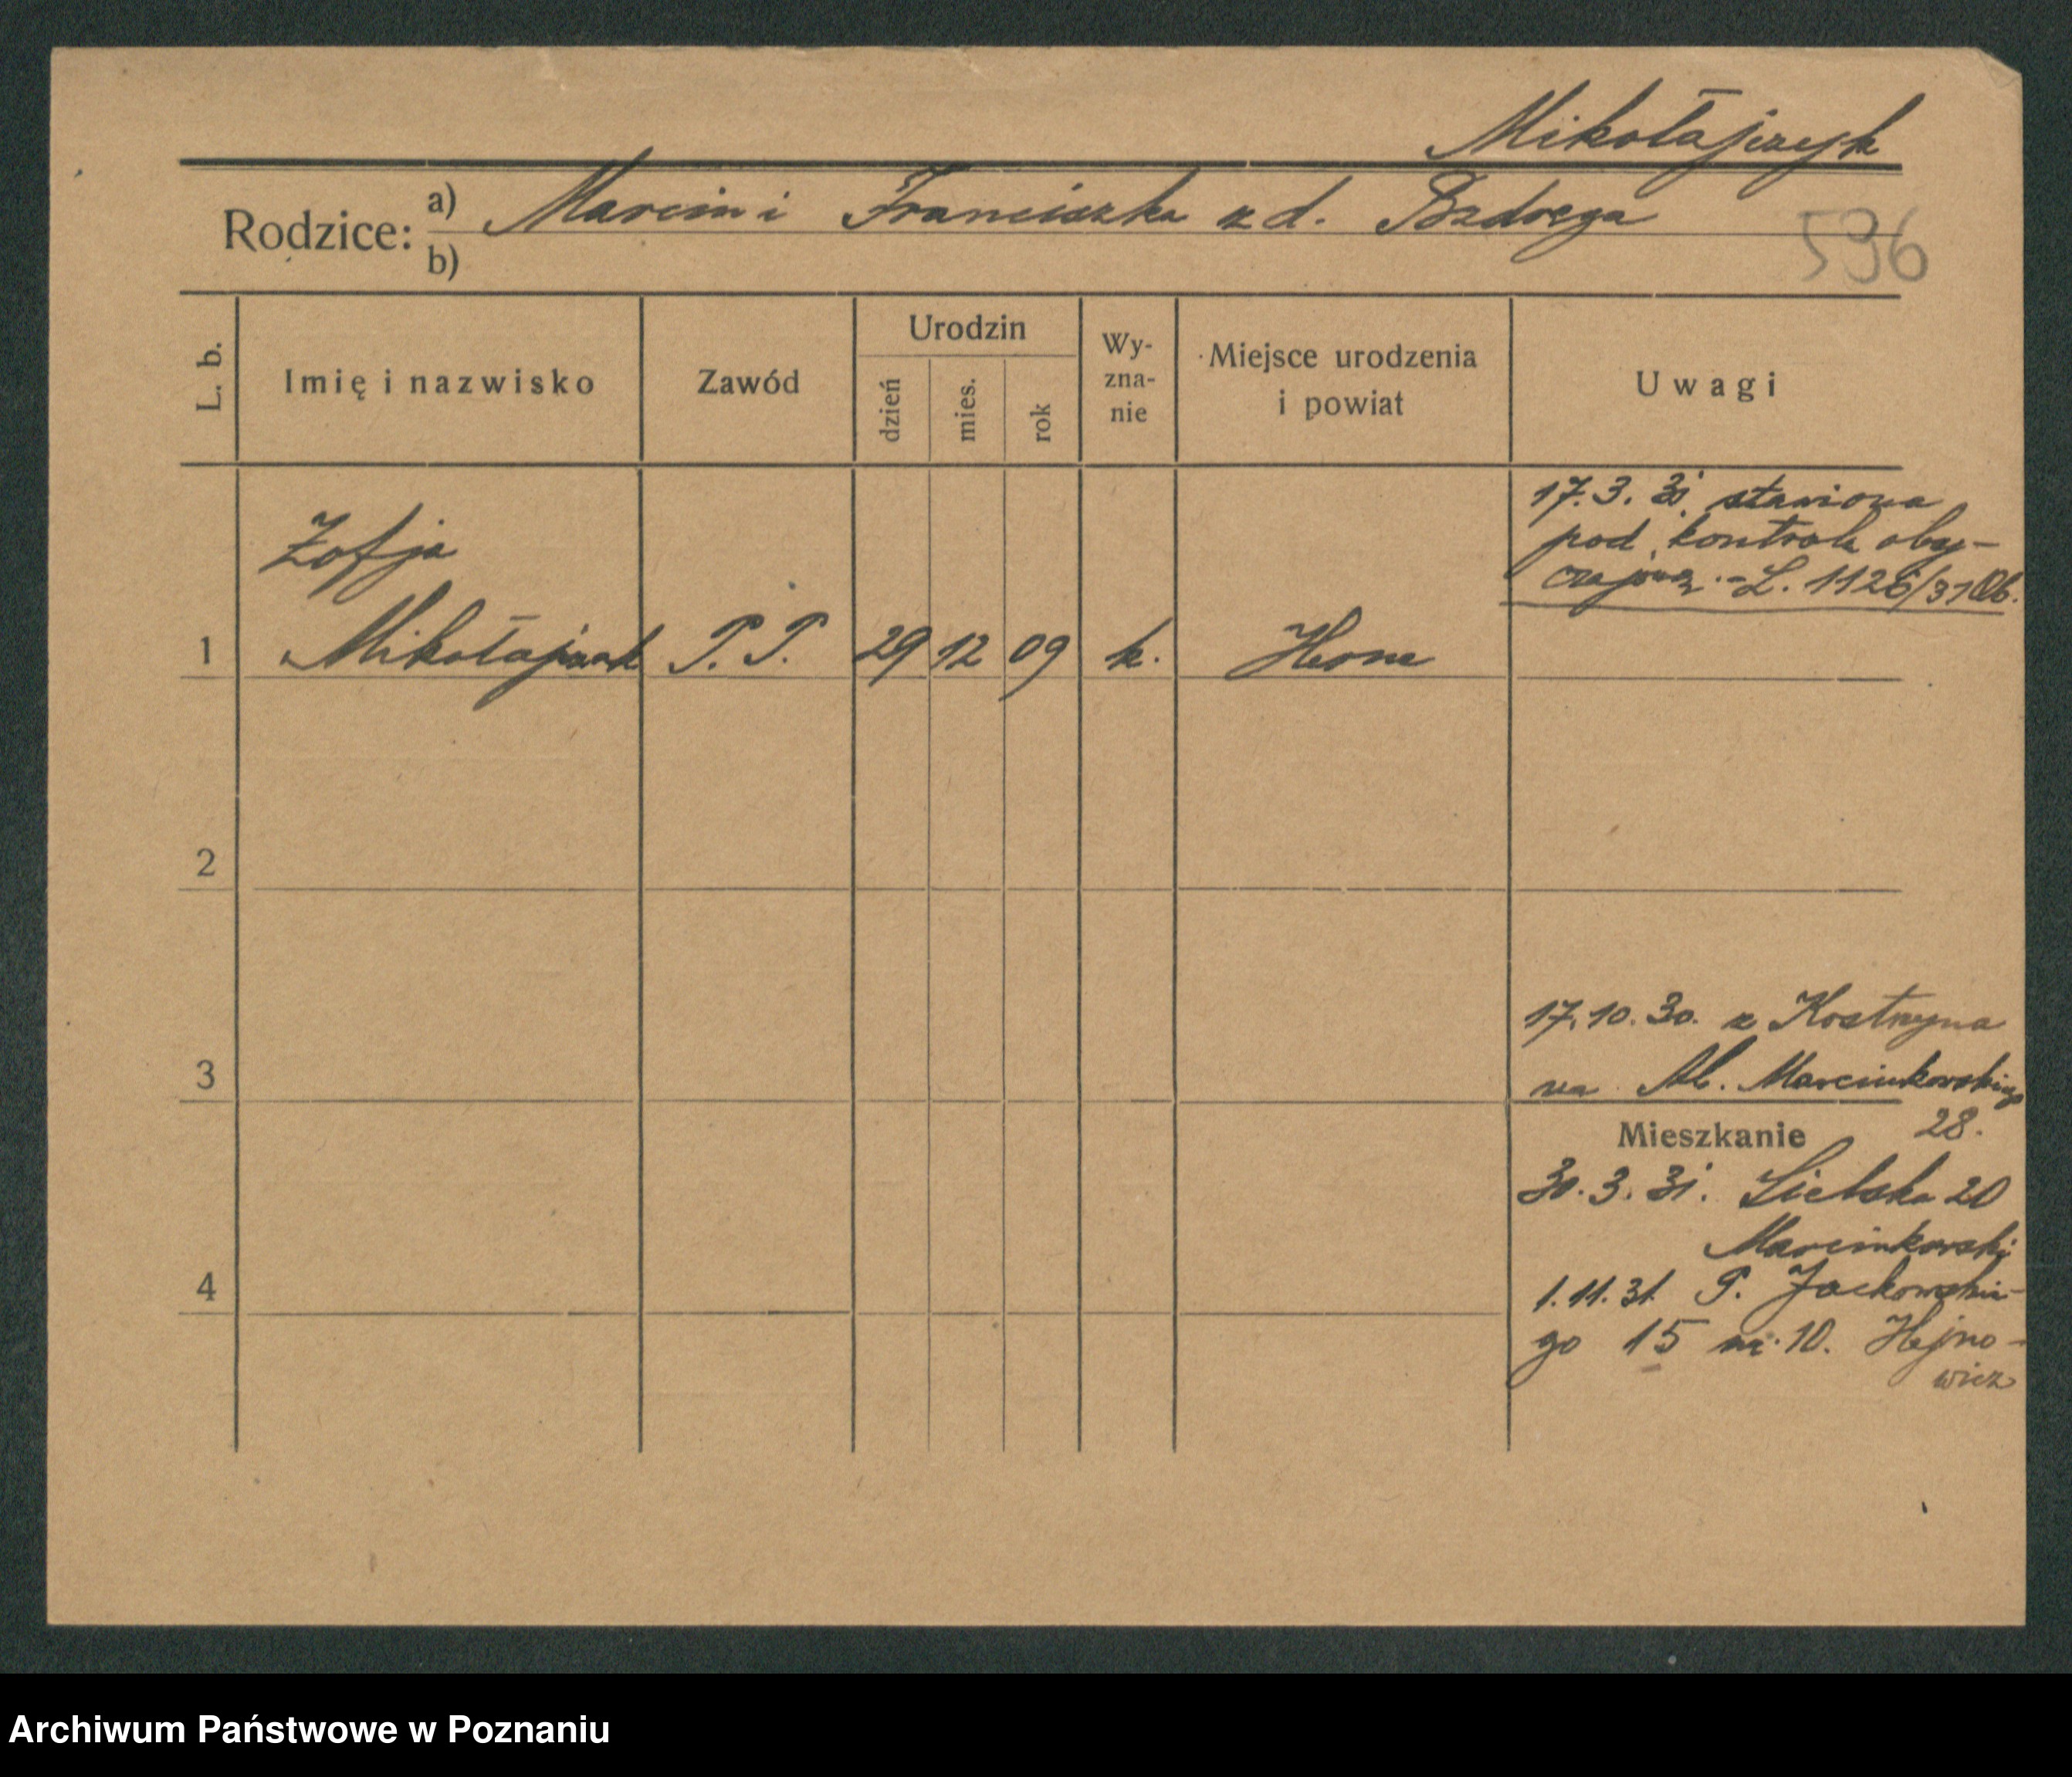 Mikołajczyk
Rodzice: a) Marcin i Franciszka z d. Bzdręga
b)
596
L. b.
Imię i nazwisko
Zawód
Urodzin
dzień
mies.
rok
Wy-
zna-
nie
Miejsce urodzenia
i powiat
Uwagi
17.3.31. stawiona
pod kontrolę oby-
czajową.- L. 1126/31 Ob.
Zofja
1 Mikołajczak P. P. 29 12 09 k. Herne
2
17.10.30. z Kostrzyna
3 na Al. Marcinkowskiego
28.
Mieszkanie
30.3.31. Sielska 20
Marcinkowski
4 1.11.31. P. Jackowskie-
go 15 m. 10. Hejno-
wicz
Archiwum Państwowe w Poznaniu